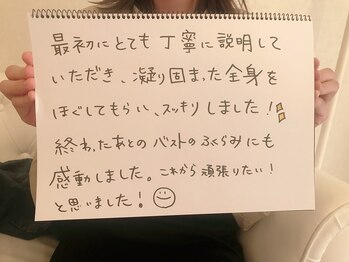 最初にとても丁寧に説明して
いただき、凝り固まった全身を
ほぐしてもらい、スッキリしました!
終わったあとのバストのふくらみにも
感動しました。これから頑張りたい!
と思いました!